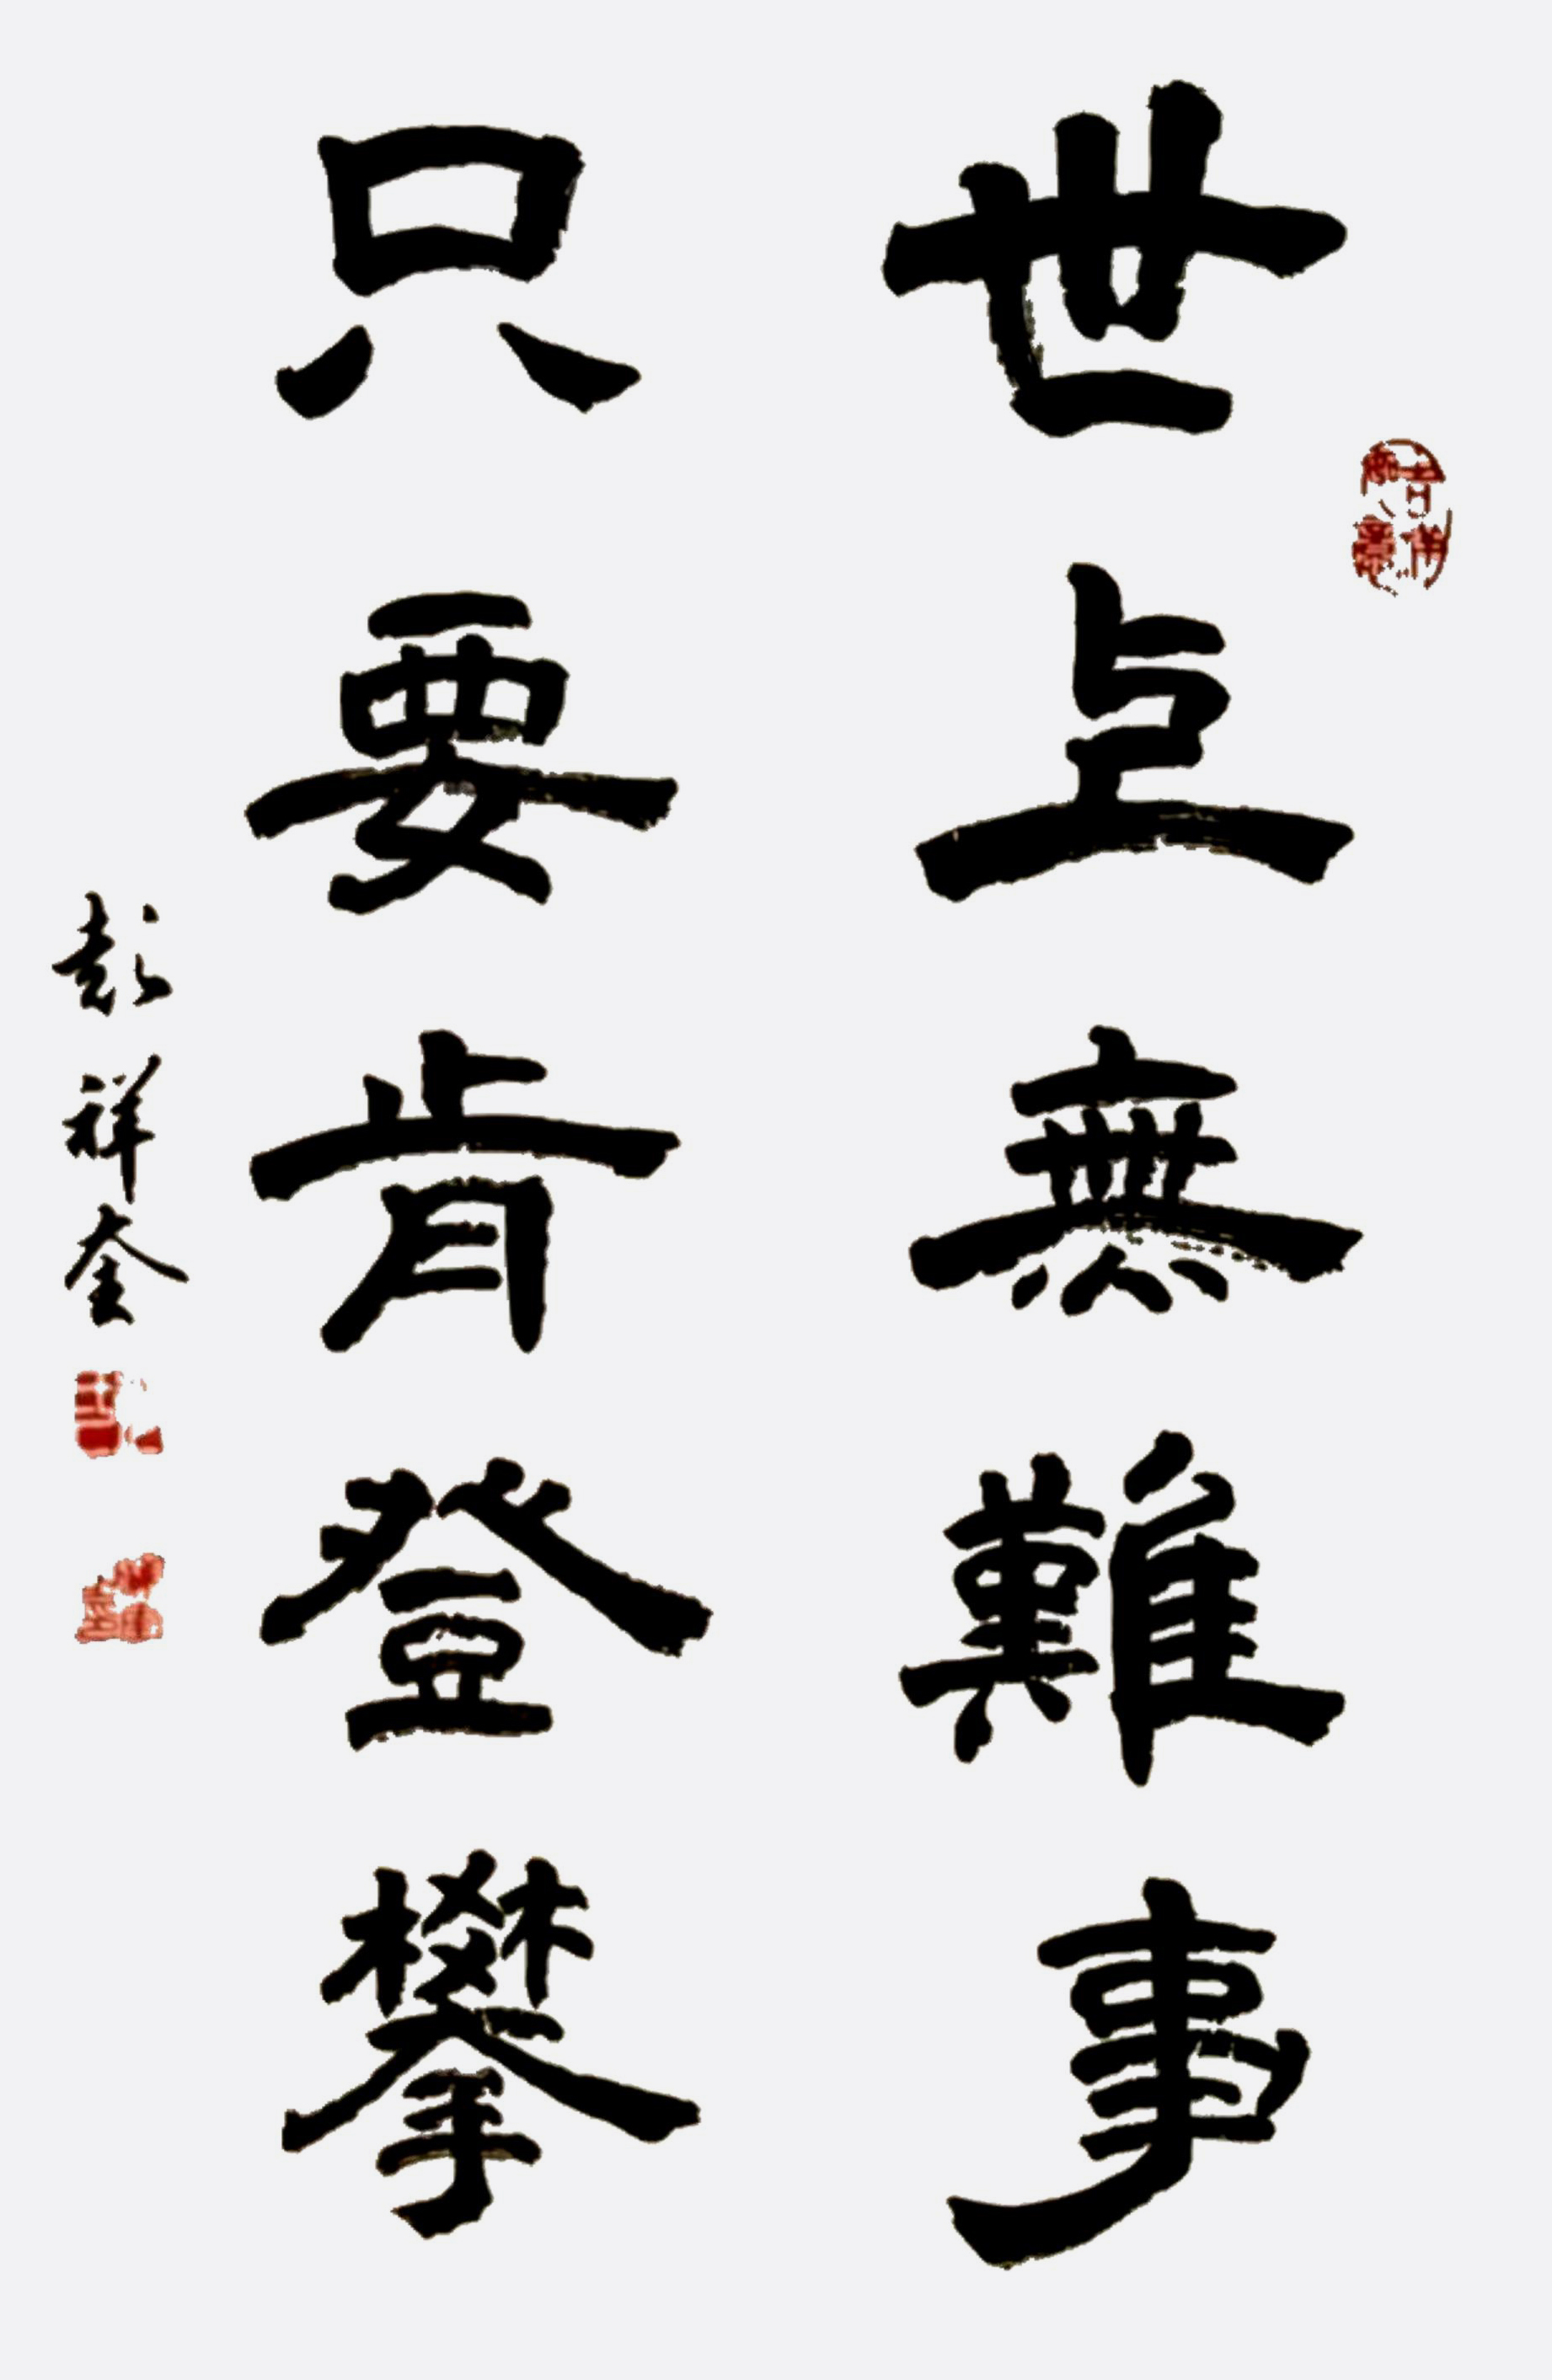 世上無難事
只要肯登攀
彭祥奎